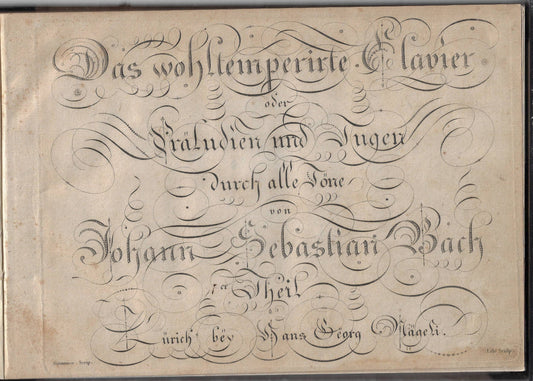 Das wohltemperirte Clavier
oder
Präludien und Fugen
durch alle Töne
von
Johann Sebastian Bach
ter Theil
Zürich bey Hans Georg Nägeli.